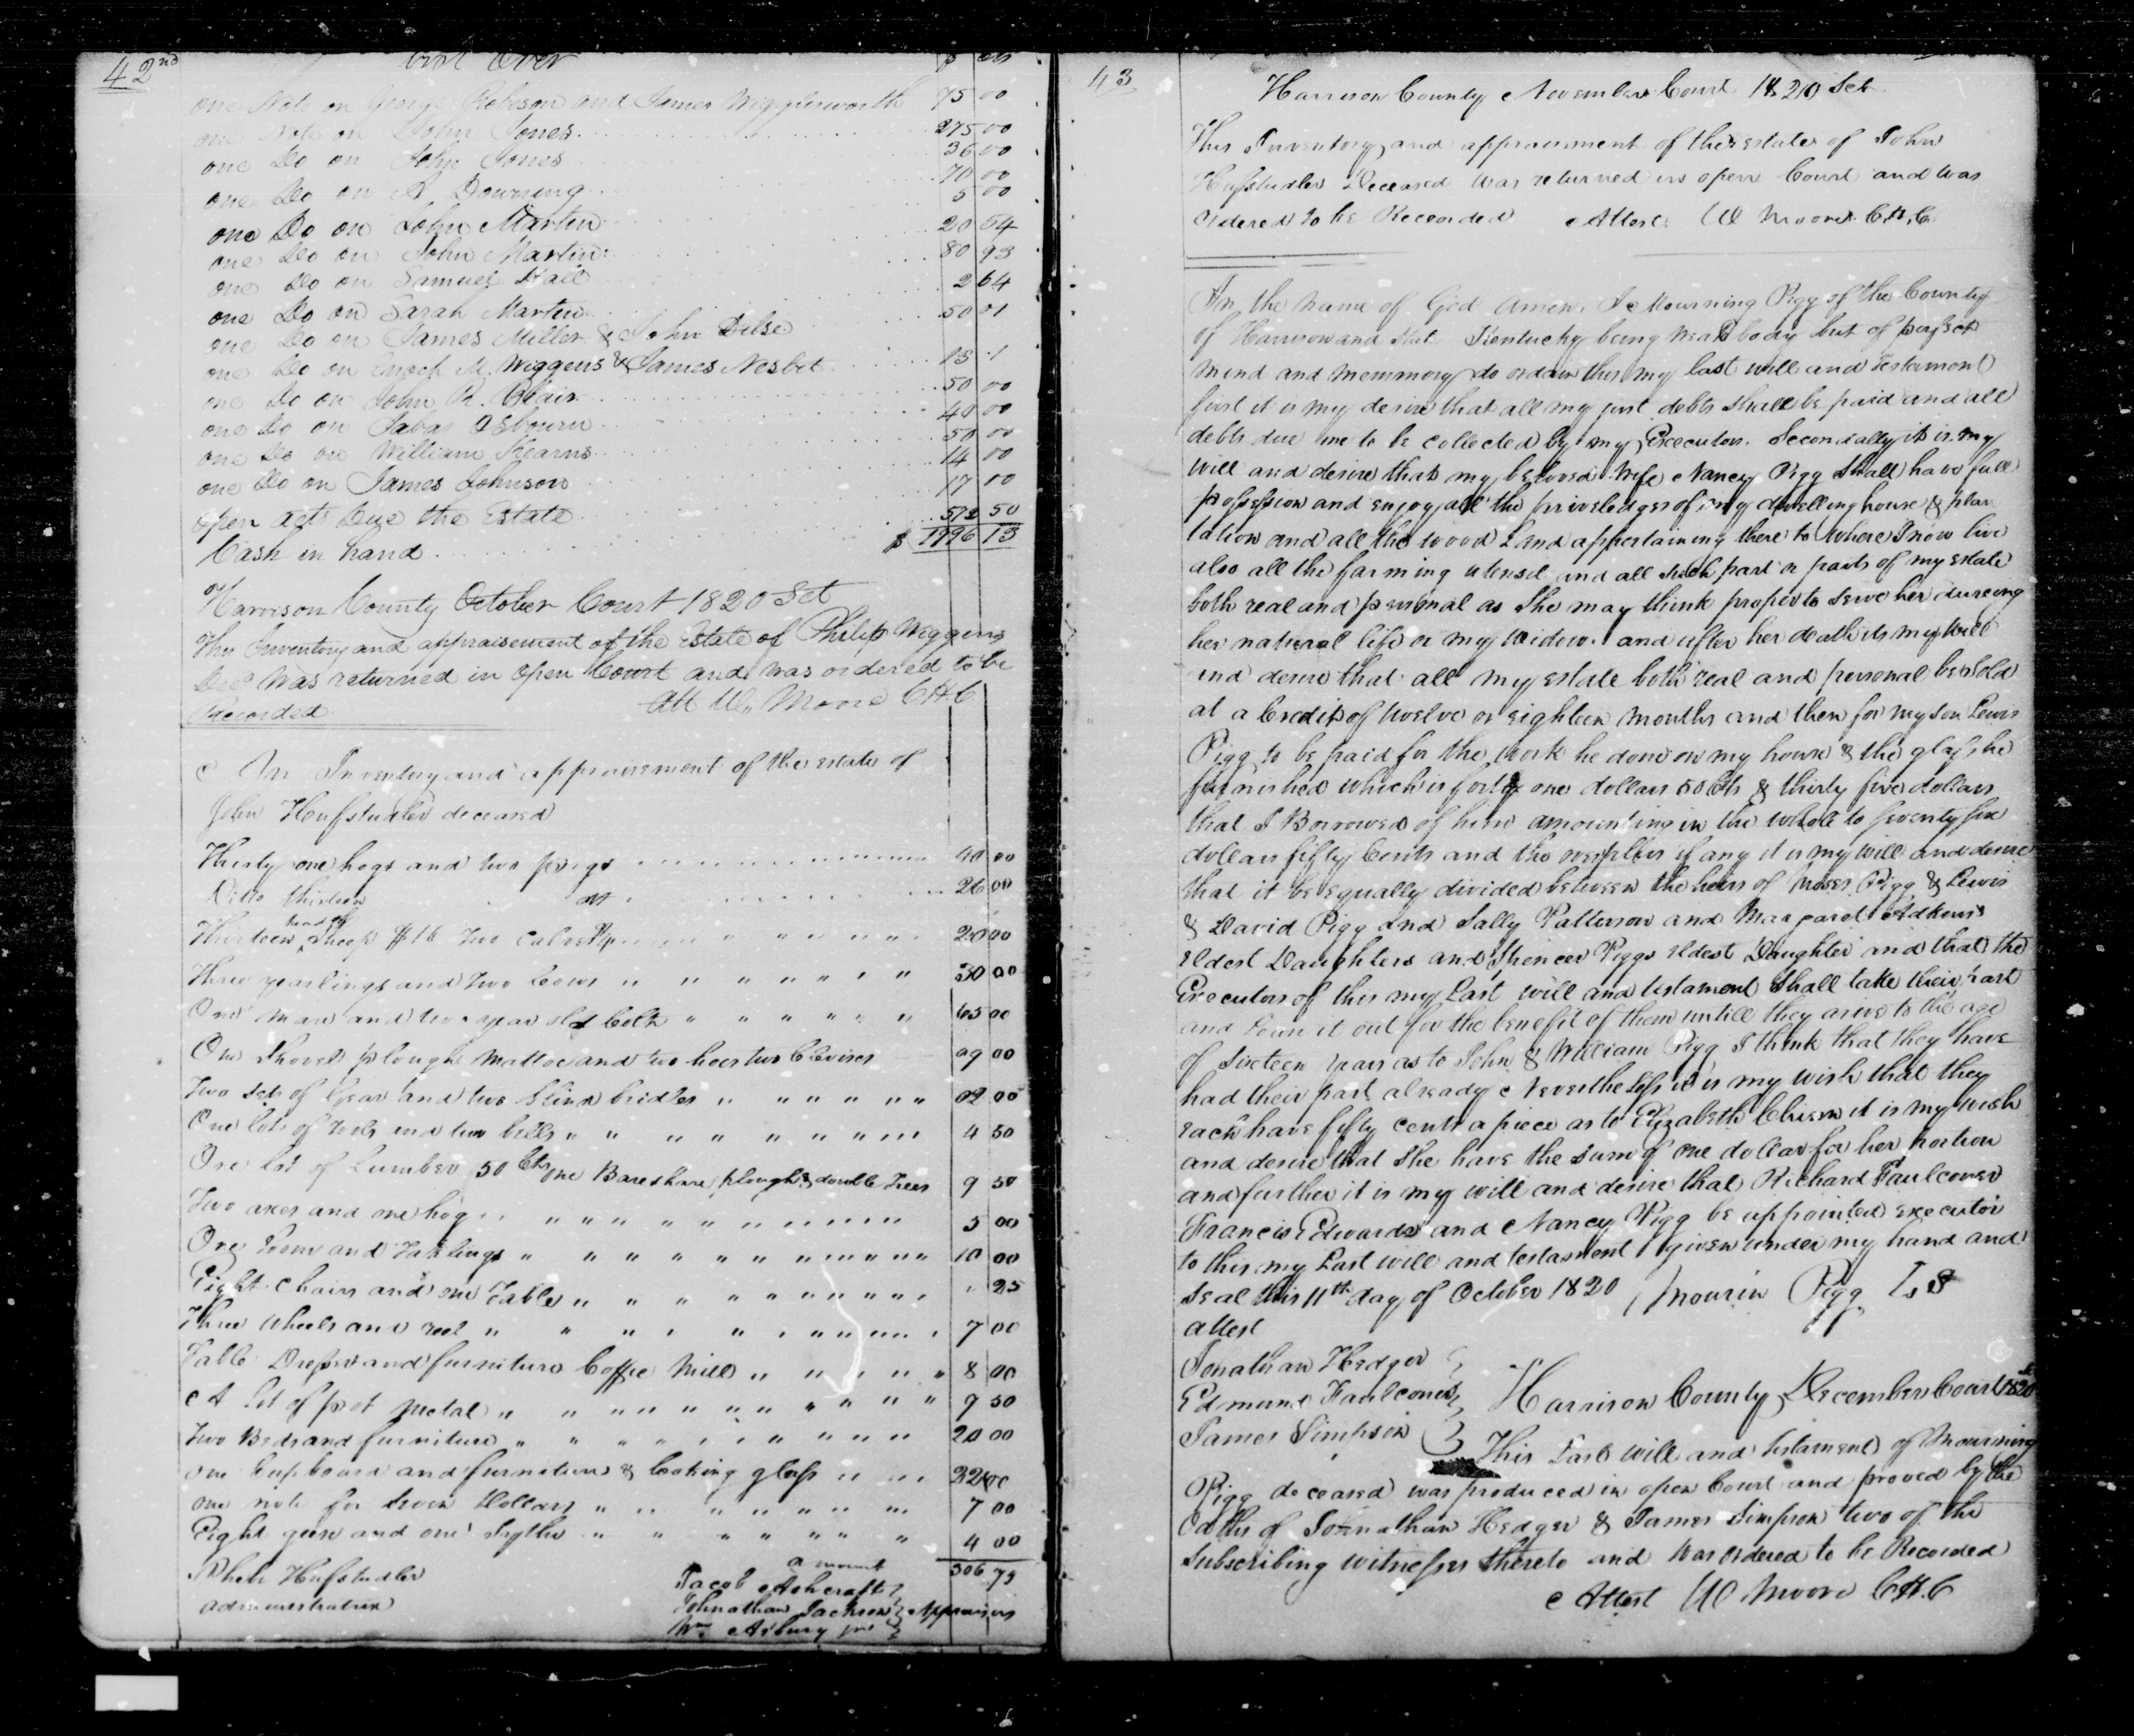 42nd
Over
$ cts
one Note on George Robeson and James Wigglesworth 75 00
one Note on John Jones 275 00
one Do on John Jones 36 00
one Do on A. Downing 70 00
one Do on John Martin 5 00
one Do on John Martin 20 54
one Do on Samuel Hall 80 93
one Do on Sarah Martin 2 64
one Do on James Miller & John Dilse 50 01
one Do on Enoch M. Wiggens & James Nesbet
one Do on John R. Blair 50 00
one Do on Osbourn 40 00
one Do on William Kearns 50 00
one Do on James Johnson 14 00
Open acts Due the Estate 17 00
Cash in hand 572 50
$ 1996 13
Harrison County October Court 1820 Sct
This Inventory and appraisement of the Estate of Philip Wiggens
Decd was returned in open Court and was ordered to be
Recorded Att Wm Moore C H C
An Inventory and appraisement of the estate of
John Hufstudler deceased
Thirty one hogs and two pigs 40 00
Ditto thirteen 26 00
Thirteen head of sheep $16 two calves 20 00
Three yearlings and two Cows " " " " " " 30 00
One mare and two year old Colt " " " " " " 65 00
One Shovel plough Mattoc and two hoes two Clevises 09 00
Two sets of Gear and two blind bridles " " " " " " 02 00
One lot of tools and two bells " " " " " " " " 4 50
One lot of Lumber 50 Cts one Bareshare plough & double trees 9 50
Two axes and one hog " " " " " " " " " " 5 00
One Loom and Tacklings " " " " " " " " " " 10 00
Eight Chairs and one Table " " " " " " " " " 25
Three Wheels and reel " " " " " " " " " " 7 00
Table Dresser and furniture Coffee Mill " " " " " " 8 00
A Lot of pot metal " " " " " " " " " " 9 50
Two Beds and furniture " " " " " " " " " " 20 00
one Cupboard and furniture & looking glass " " " 32 00
one note for seven Dollars " " " " " " " " 7 00
Eight geese and one Scythe " " " " " " " 4 00
amount 306 75
Pheba Hufstudler
administratrix
Jacob Ashcraft
Johnathan Jackson } Appraisers
Wm Asbury jnr
43
Harrison County November Court 1820 Sct
This Inventory and appraisement of the estate of John
Hufstudler Deceased was returned in open Court and was
ordered to be Recorded Attest W Moore C.H.C.
In the name of God Amen. I Mourning Pigg of the County
of Harrison and State Kentucky being weak body but of perfect
mind and memmory do ordain this my last will and testament
first it is my desire that all my just debts shall be paid and all
debts due me to be collected by my Executors. Secondally it is my
will and desire that my beloved wife Nancy Pigg shall have full
possession and enjoy all the priveledges of my dwelling house & plan
tation and all the wood Land appertaining there to where I now live
also all the farming utensil and all such part or parts of my estate
both real and personal as she may think proper to serve her dureing
her natural life or my widow. and after her death its my will
and desire that all my estate both real and personal be sold
at a Credit of twelve or eighteen months and then for my son Lewis
Pigg to be paid for the work he done on my house & the glass he
furnished which is forty one dollars 50 Cts & thirty five dollars
that I Borrowed of him amounting in the whole to seventy six
dollars fifty Cents and the overplus if any it is my will and desire
that it be equally divided between the heirs of Moses Pigg & Lewis
& David Pigg and Sally Patterson and Margaret Adkins
eldest Daughters and Spencer Piggs eldest Daughter and that the
Executors of this my Last will and testament shall take their part
and Loan it out for the benefit of them untill they arive to the age
of sixteen years as to John & William Pigg I think that they have
had their part already Nevertheless it is my wish that they
each have fifty cents a piece as to Elizabeth it is my wish
and desire that she have the sum of one dollar for her portion
and further it is my will and desire that Richard Faulconer
Francis Edwards and Nancy Pigg be appointed executor
to this my Last will and testament given under my hand and
seal this 11th day of October 1820 Mourin Pigg L S
attest
Jonathan Hedger
Edmund Faulconer
James Simpson
Harrison County December Court 1820
This Last will and testament of Mourning
Pigg deceased was produced in open Court and proved by the
Oaths of Johnathan Hedger & James Simpson two of the
subscribing witnesses thereto and was ordered to be Recorded
Attest W Moore C.H.C